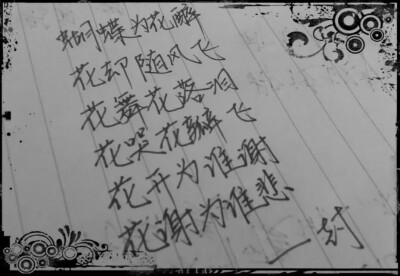 蝴蝶为花醉
花却随风飞
花舞花落泪
花哭花瓣飞
花开为谁谢
花谢为谁悲